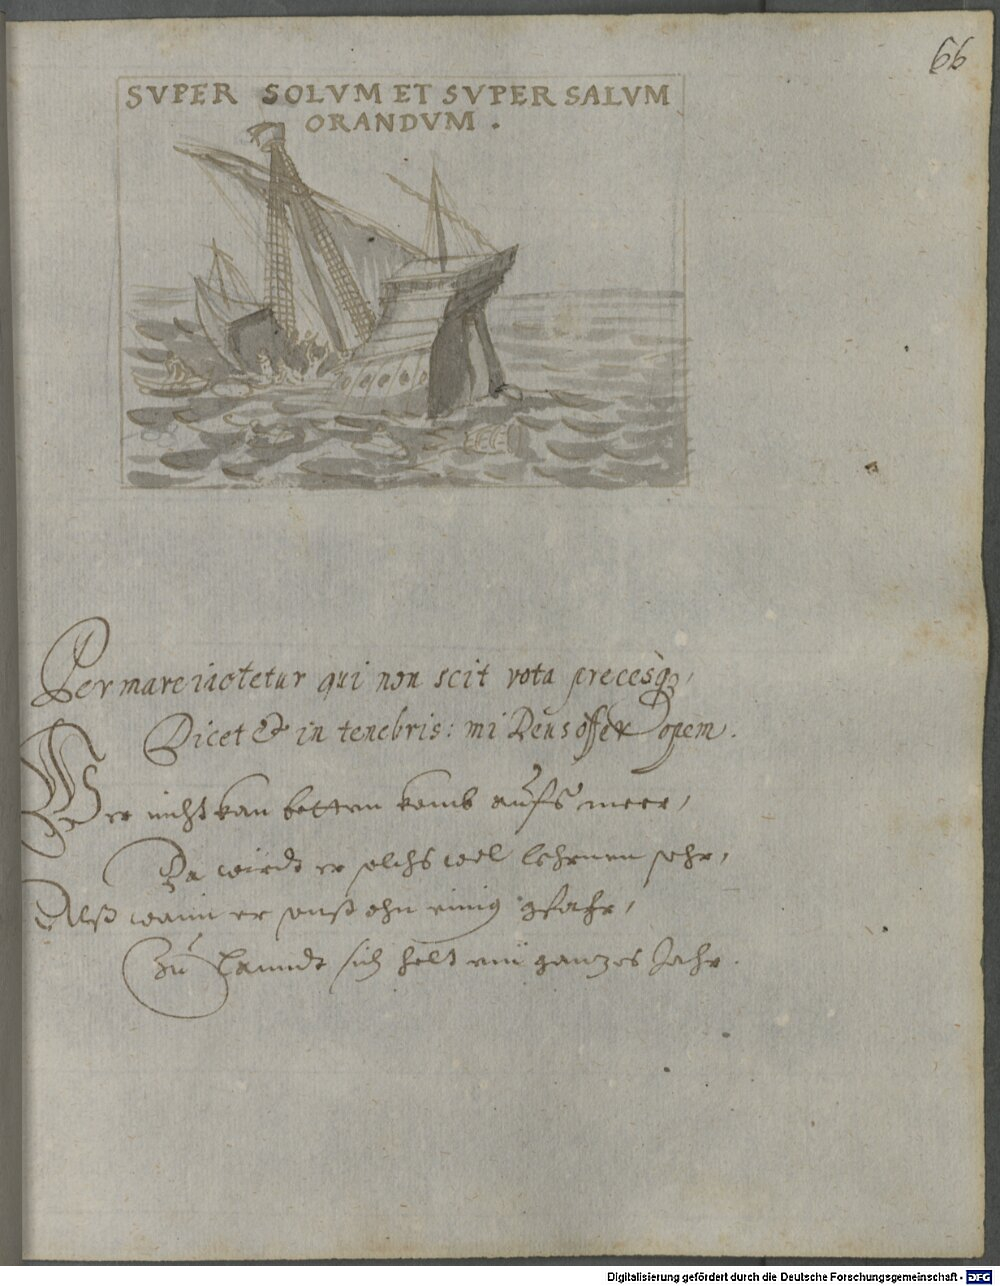 66
SVPER SOLVM ET SVPER SALVM
ORANDVM .
Per mare iactetur qui non scit vota precesq,
Dicet & in tenebris: mi Deus offer opem.
Wer nicht kan betten komb aufs meer,
Da wirdt er solchs wol lehrnen sehr,
Alß wann er sonst ohn einig gfahr,
Zu Lanndt sich helt ein ganzes Jahr.
Digitalisierung gefördert durch die Deutsche Forschungsgemeinschaft - DFG